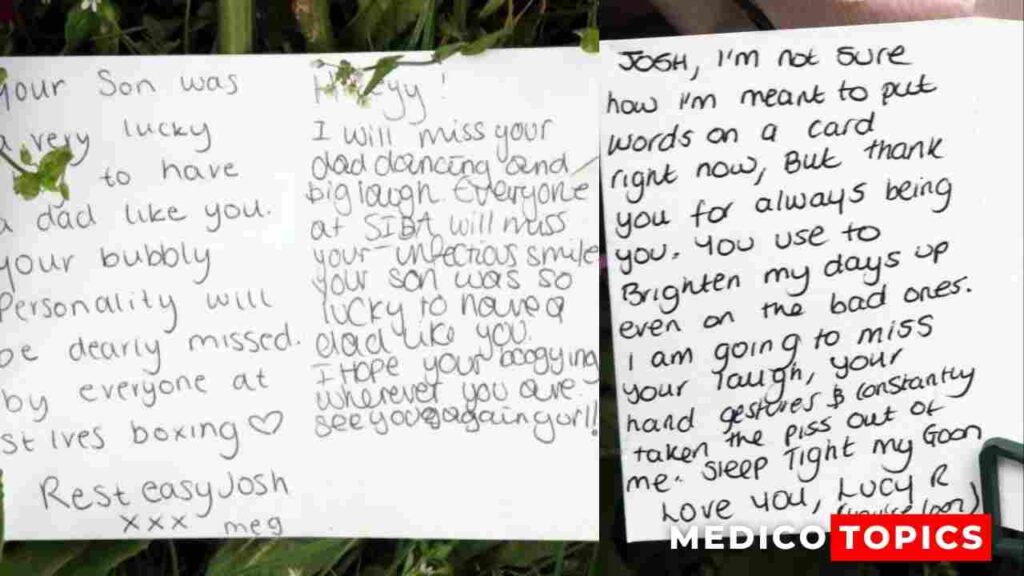 your Son was
a very lucky
to have
a dad like you.
your bubbly
Personality will
be dearly missed.
by everyone at
st ives boxing ♡
Rest easy Josh
xxx meg
I will miss your
dad dancing and
big laugh. Everyone
at SIBA will miss
your infectious smile
your son was so
lucky to have a
dad like you.
I hope your boogying
wherever you are.
see you again gurl!
JOSH, I'm not sure
how I'm meant to put
words on a card
right now, But thank
you for always being
you. You use to
Brighten my days up
even on the bad ones.
I am going to miss
your laugh, your
hand gestures & constantly
taken the piss out of
me. Sleep Tight my Goon
Love you, Lucy R
MEDICO TOPICS